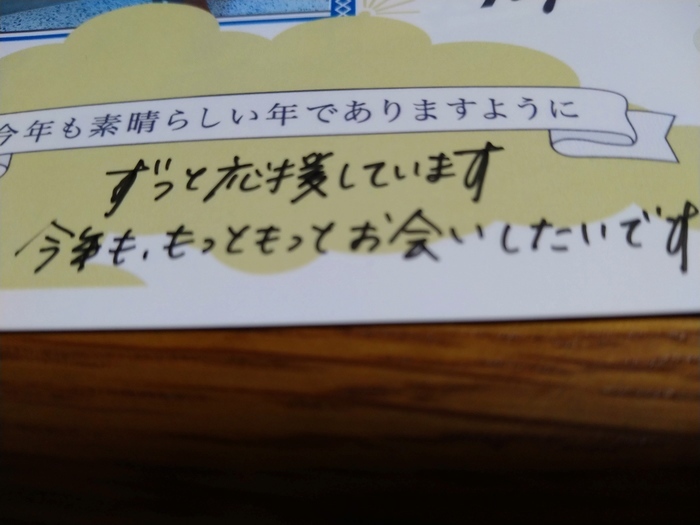 今年も素晴らしい年でありますように
ずっと応援しています
今年も、もっともっとお会いしたいです